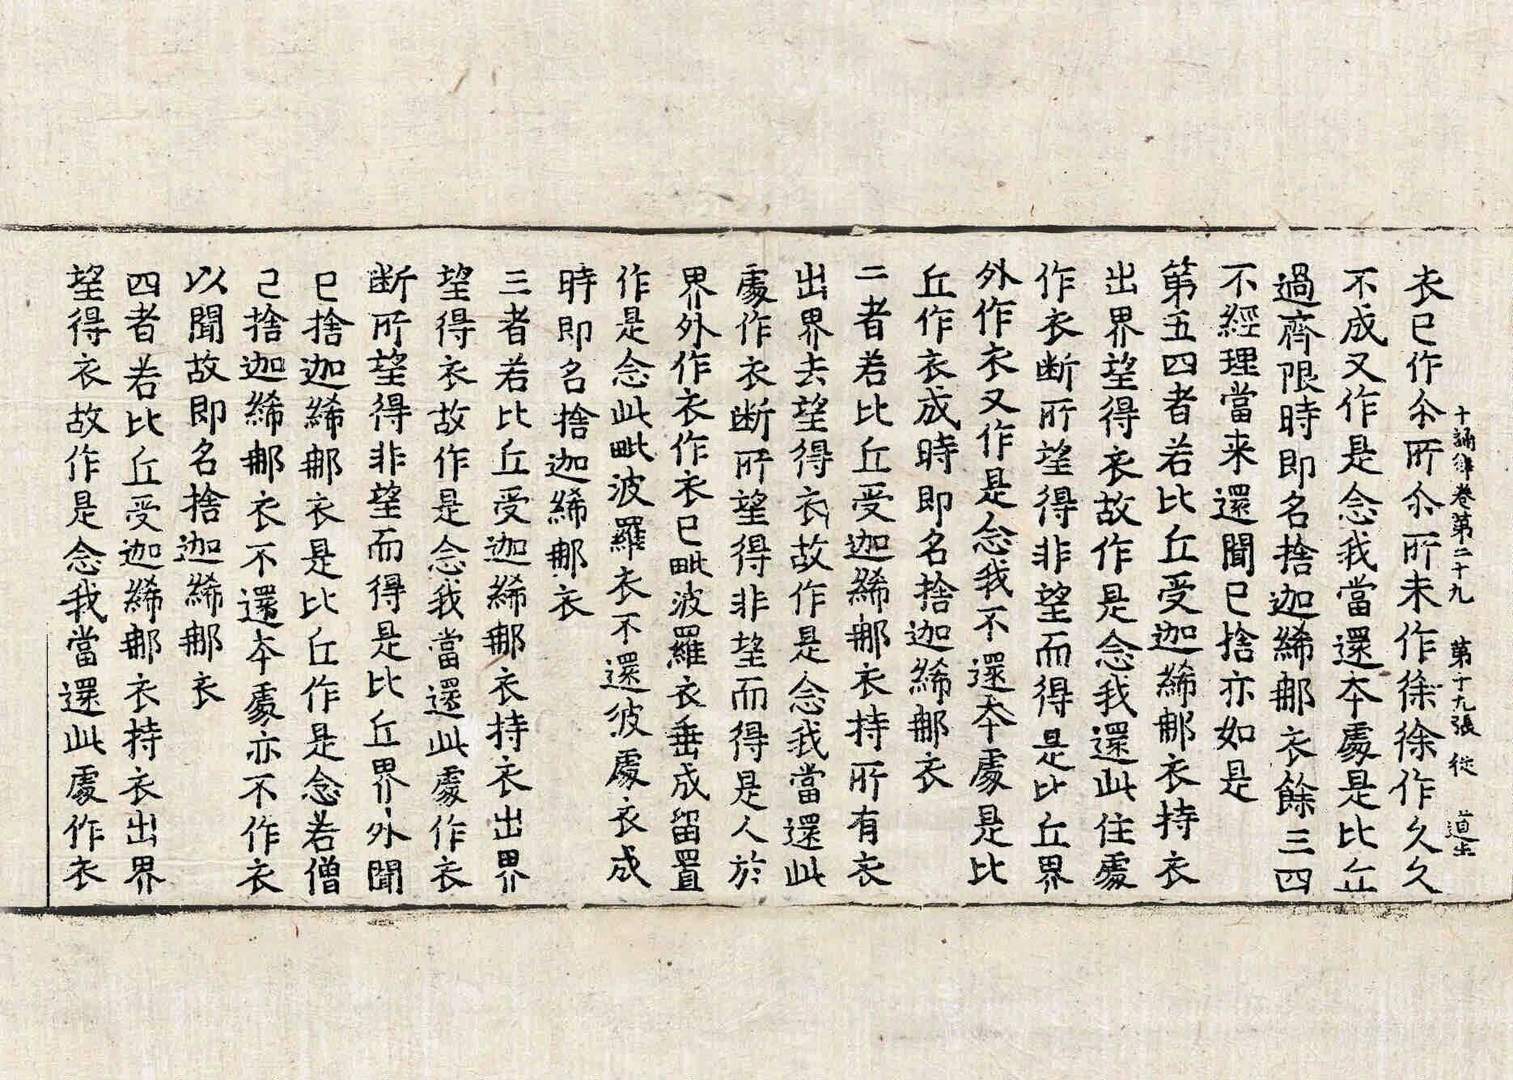 十誦律卷第二十九　第十九張　從　道
衣已作尒所尒所未作徐徐作久久
不成又作是念我當還本處是比丘
過齊限時即名捨迦絺那衣餘三四
不經理當来還聞已捨亦如是
第五四者若比丘受迦絺那衣持衣
出界望得衣故作是念我還此住處
作衣断所望得非望而得是比丘界
外作衣又作是念我不還本處是比
丘作衣成時即名捨迦絺那衣
二者若比丘受迦絺那衣持所有衣
出界去望得衣故作是念我當還此
處作衣断所望得非望而得是人於
界外作衣作衣已毗波羅衣垂成留置
作是念此毗波羅衣不還彼處衣成
時即名捨迦絺那衣
三者若比丘受迦絺那衣持衣出界
望得衣故作是念我當還此處作衣
断所望得非望而得是比丘界外聞
已捨迦絺那衣是比丘作是念若僧
已捨迦絺那衣不還本處亦不作衣
以聞故即名捨迦絺那衣
四者若比丘受迦絺那衣持衣出界
望得衣故作是念我當還此處作衣